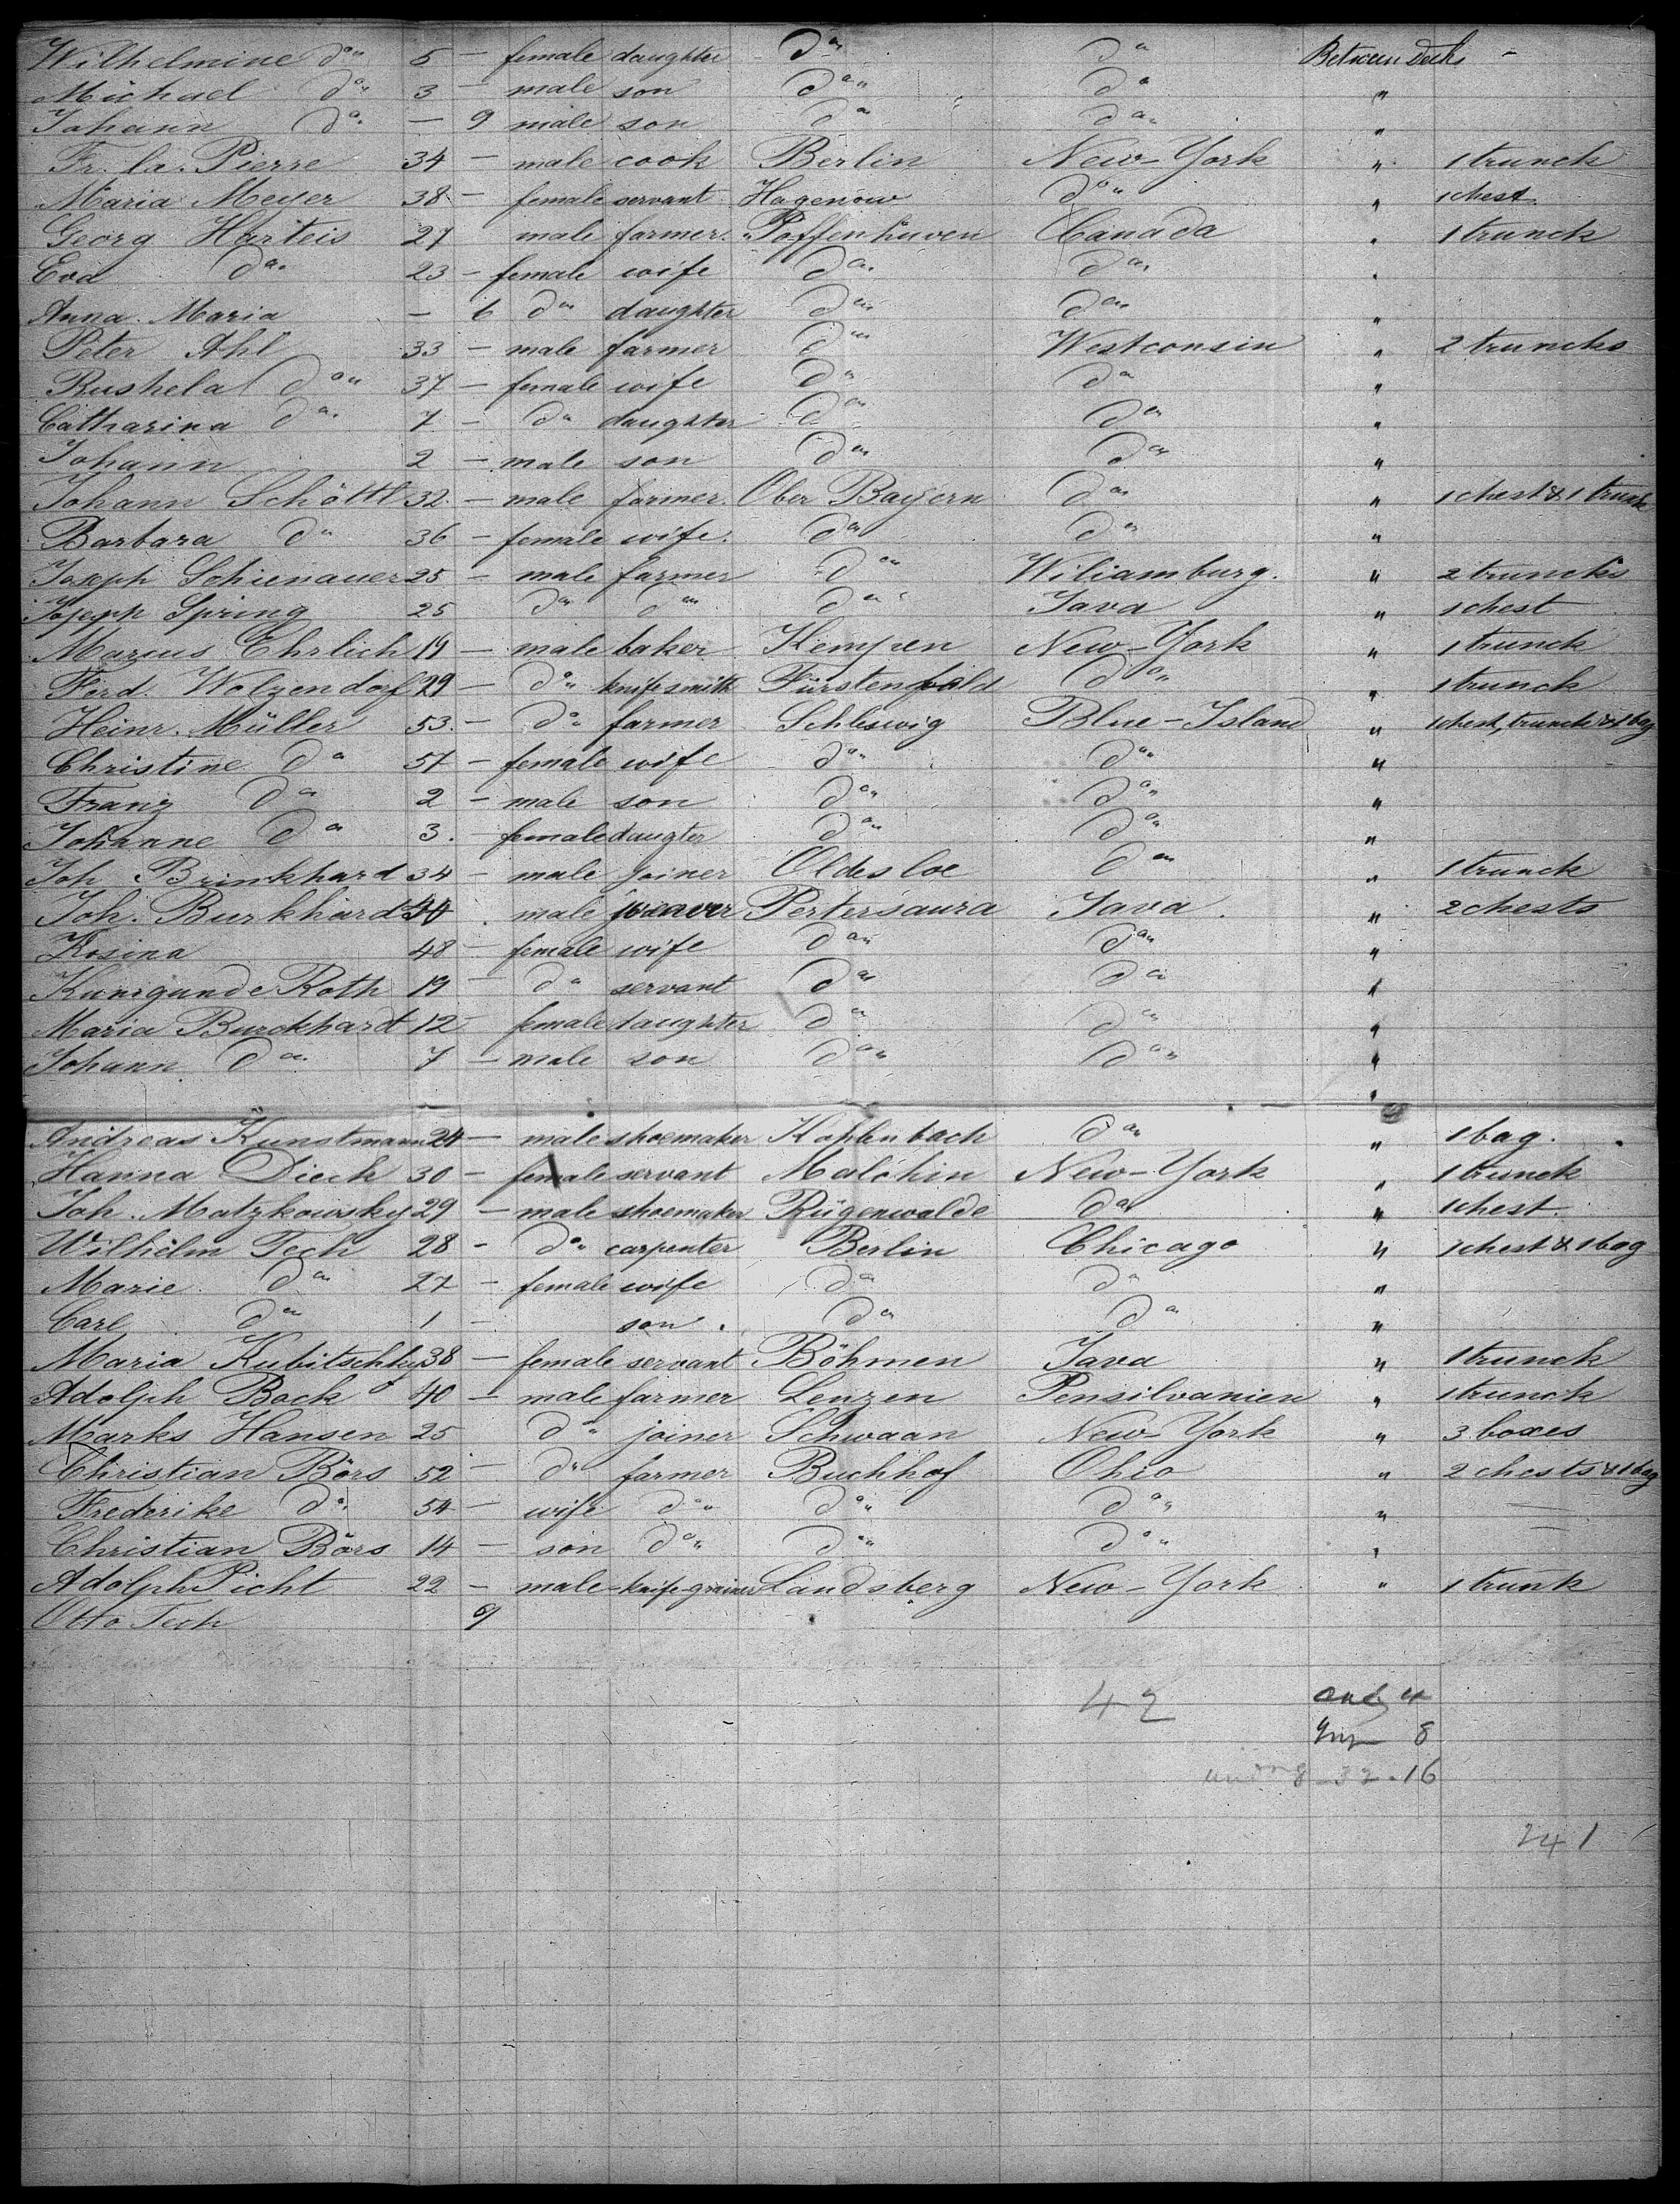 Wilhelmine do 5 — female daughter do do Between Decks -
Michael do 3 — male son do do "
Johann do — 9 male son do do "
Fr. la. Pierre 34 — male cook Berlin New-York " 1 trunck
Maria Meyer 38 — female servant Hagenow do " 1 chest.
Georg Harteis 27 male farmer. Poffenhuven Canada " 1 trunck
Eva do 23 — female wife do do "
Anna. Maria — 6 do daughter do do "
Peter Ahl 33 — male farmer do Westconsin " 2 truncks
Rushela do 37 — female wife do do "
Catharina do 7 — do daughter do do "
Johann 2 — male son do do "
Johann Schöttl 32. — male farmer. Ober Bayern do " 1 chest & 1 trunk
Barbara do 36 — female wife. do do "
Joseph Schienauer 25 — male farmer do Wiliamburg. " 2 truncks
Joseph Spring 25 do do do Java " 1 chest
Marcus Ehrlich 19 — male baker Kempen New-York " 1 trunck
Ferd. Wolzendorf 29 — do knifesmith do " 1 trunck
Heinr. Müller 53. — do farmer Schleswig Blue-Island " 1 chest, trunck & 1 bag
Christine do 57 — female wife do do "
Franz do 2 — male son do do "
Johanne do 3. — female daugter do do "
Joh Brinkhard 34 — male joiner Oldesloe do " 1 trunck
Joh. Burkhard 40 . male weaver Pertersaura Java. " 2 chests
Rosina 48 — female wife do do "
Kunigunde Roth 19 — do servant do do "
Maria Burckhardt 12 female daughter do do "
Johann do 7 — male son do do "
"
Andreas Kunstmann 24 — male shoemaker Kohlenbach do " 1 bag.
Hanna Dieck 30 — female servant Malchin New-York " 1 trunck
Joh. Matzkowsky 29 — male shoemaker Rügenwalde do " 1 chest.
Wilhelm Tech 28 - do carpenter Berlin Chicago " 1 chest & 1 bag
Marie do 27 — female wife do do "
Carl do 1 — son. do do "
Maria Kubitschky 38 — female servant Böhmen Java " 1 trunck
Adolph Bock 40 — male farmer Lenzen Pensilvanien " 1 trunck
Marks Hansen 25 do joiner Schwaan New-York " 3 boxes
Christian Börs 52 — do farmer Buchhof Ohio " 2 chests & 1 bag
Frederike do 54 — wife do do do "
Christian Börs 14 — son do do do "
Adolph Picht 22 — male - knife-grainer Landsberg New-York " 1 trunk
Otto Tech 9
42
8
8 - 32 . 16
241